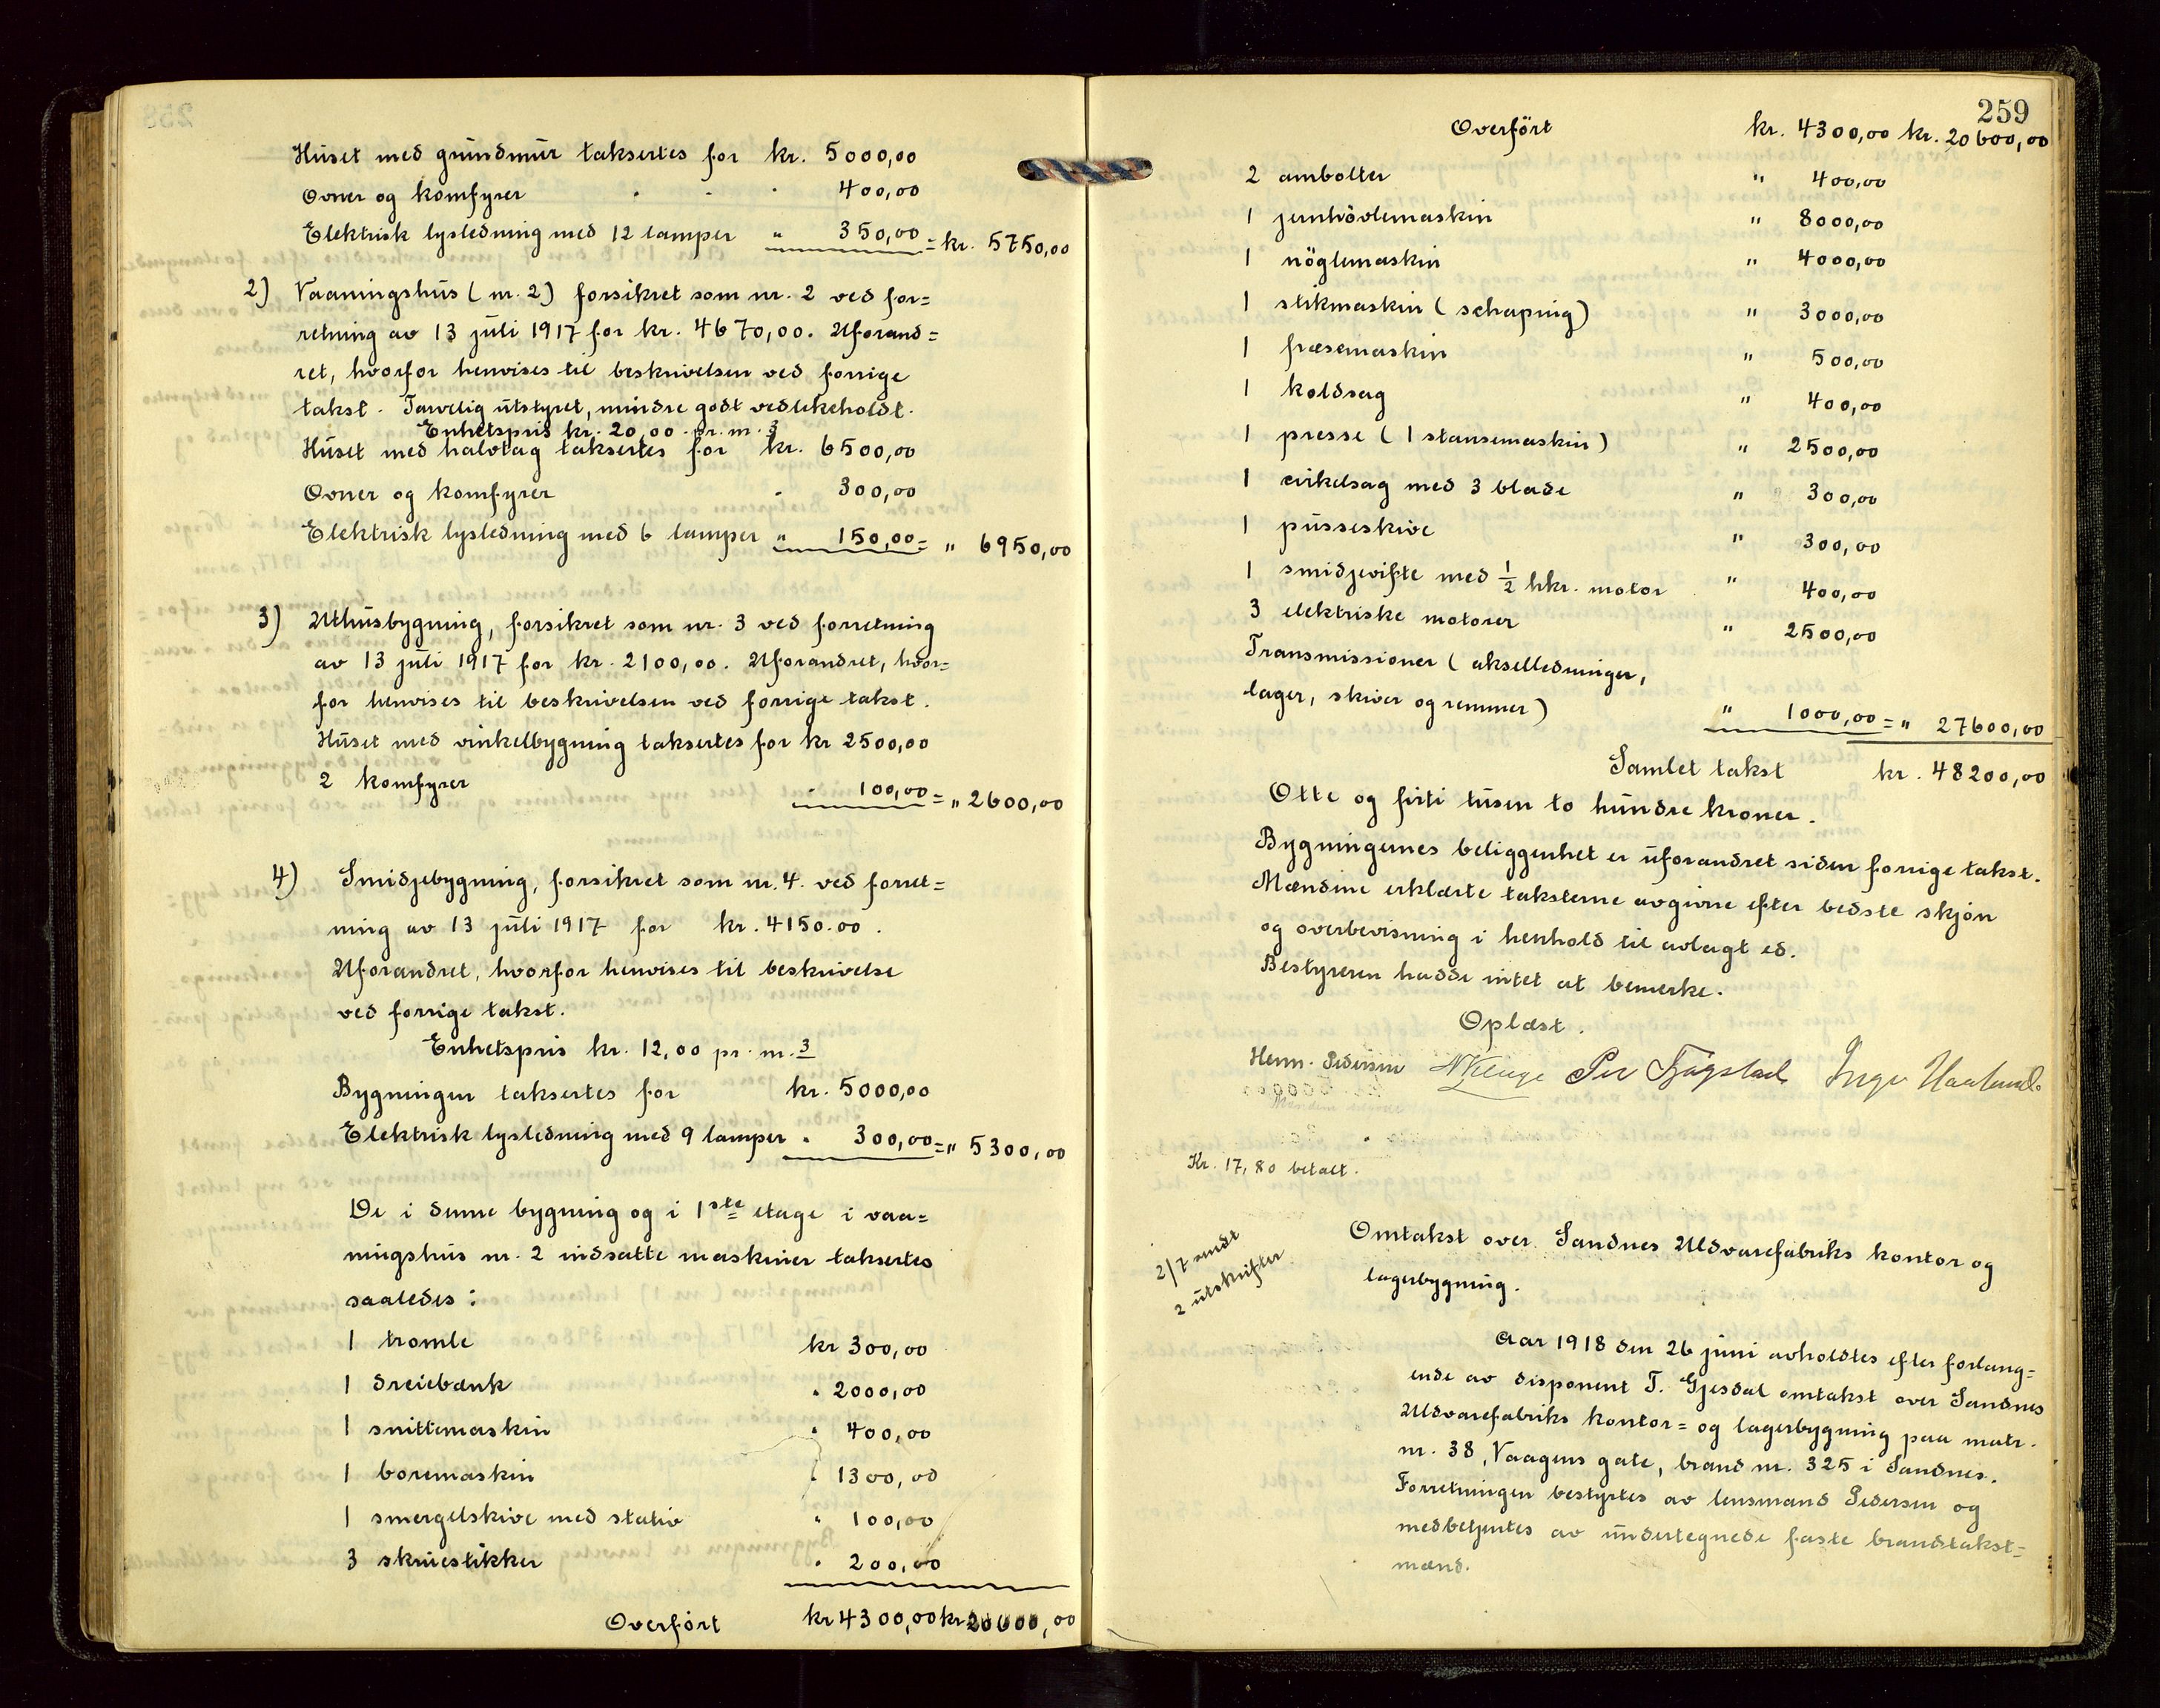 Huset med grundmur taksertes for kr. 5000,00
Ovner og komfyrer " 400,00
Elektrisk lysledning med 12 lamper " 350,00 = kr. 5750,00
2) Vaaningshus (nr. 2) forsikret som nr. 2 ved for=
retning av 13 juli 1917 for kr. 4670,00. Uforand=
ret, hvorfor henvises til beskrivelsen ved forrige
takst. Tarvelig utstyret, mindre godt vedlikeholdt.
Enhetspris kr. 20,00 pr. m.3
Huset med halvtag taksertes for kr. 6500,00
Ovner og komfyrer " 300,00
Elektrisk lysledning med 6 lamper " 150,00 = " 6950,00
3) Uthusbygning, forsikret som nr. 3 ved forretning
av 13 juli 1917 for kr. 2100,00. Uforandret, hvor=
for henvises til beskrivelsen ved forrige takst.
Huset med vinkelbygning taksertes for kr 2500,00
2 komfyrer " 100,00 = " 2600,00
4) Smidjebygning, forsikret som nr. 4 ved forret=
ning av 13 juli 1917 for kr. 4150.00.
Uforandret, hvorfor henvises til beskrivelse
ved forrige takst.
Enhetspris kr. 12,00 pr. m.3
Bygningen taksertes for kr. 5000,00
Elektrisk lysledning med 9 lamper " 300,00 = " 5300,00
De i denne bygning og i 1ste etage i vaa=
ningshus nr. 2 indsatte maskiner taksertes
saaledes:
1 tromle kr 300,00
1 dreiebænk " 2000,00
1 snittemaskin " 400,00
1 boremaskin " 1300,00
1 smergelskive med stativ " 100,00
3 skruestikker " 200,00
Overført kr 4300,00 kr 20600,00
259
Overført kr. 4300,00 kr. 20600,00
2 ambolter " 400,00
1 jernhøvlemaskin " 8000,00
1 nøglemaskin " 4000,00
1 stikmaskin (schaping) " 3000,00
1 fræsemaskin " 500,00
1 koldsag " 400,00
1 presse (1 stansemaskin) " 2500,00
1 cirkelsag med 3 blade " 300,00
1 pusseskive " 300,00
1 smidjevifte med 1/2 hkr. motor " 400,00
3 elektriske motorer " 2500,00
Transmissioner (akselledninger,
lager, skiver og remmer) " 1000,00 = " 27600,00
Samlet takst kr. 48200,00
Otte og firti tusen to hundre kroner.
Bygningernes beliggenhet er uforandret siden forrige takst.
Mændene erklærte taksterne avgivne efter bedste skjøn
og overbevisning i henhold til avlagt ed.
Bestyreren hadde intet at bemerke.
Oplæst.
Henn. Pedersen Per Fjogstad Inge Haaland.
Kr. 17,80 betalt.
2/7 sendt
2 utskrifter
Omtakst over Sandnes Uldvarefabriks kontor og
lagerbygning.
Aar 1918 den 26 juni avholdtes efter forlang=
ende av disponent T. Gjesdal omtakst over Sandnes
Uldvarefabriks kontor= og lagerbygning paa matr.
nr. 38, Vaagens gate, brand nr. 325 i Sandnes.
Forretningen bestyrtes av lensmand Pedersen og
medbetjentes av undertegnede faste brandtakst=
mænd.